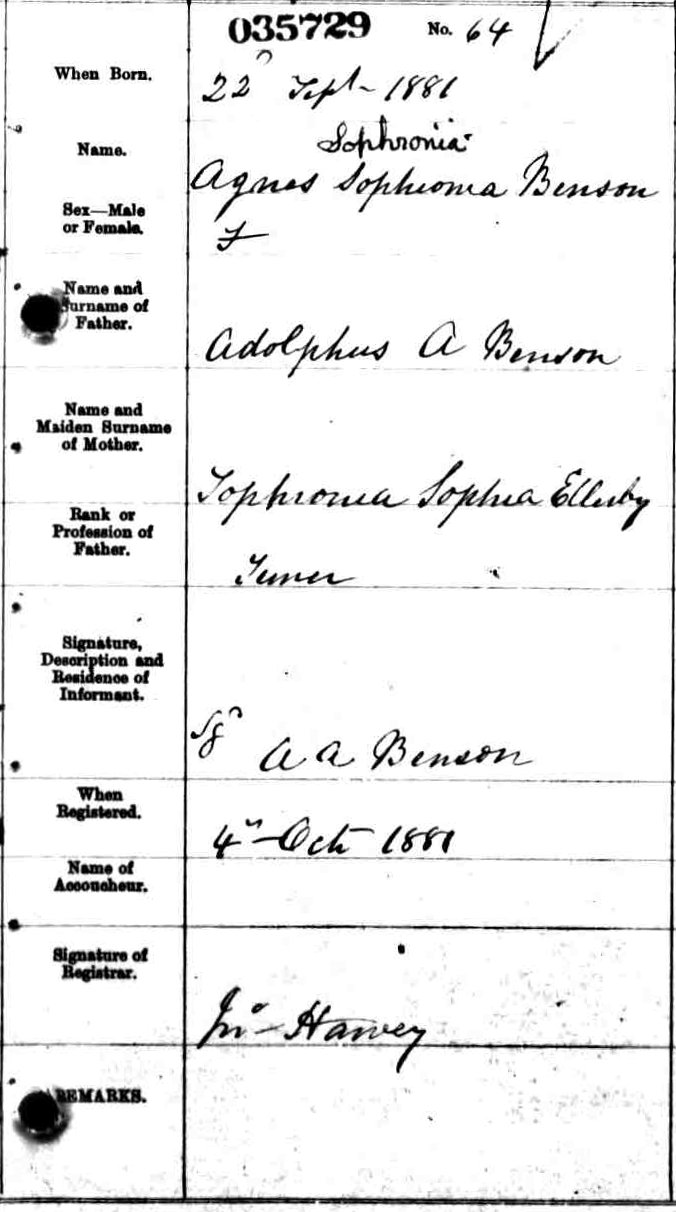 035729 No. 64
When Born.
22d Sept 1881
Sophronia
Name.
Agnes Sophronia Benson
Sex—Male
or Female.
F
Name and
Surname of
Father.
Adolphus A Benson
Name and
Maiden Surname
of Mother.
Sophronia Sophia Ellerby
Rank or
Profession of
Father.
Signature,
Description and
Residence of
Informant.
Sgd A A Benson
When
Registered.
4th Oct 1881
Name of
Accoucheur.
Signature of
Registrar.
Jno Harvey
REMARKS.